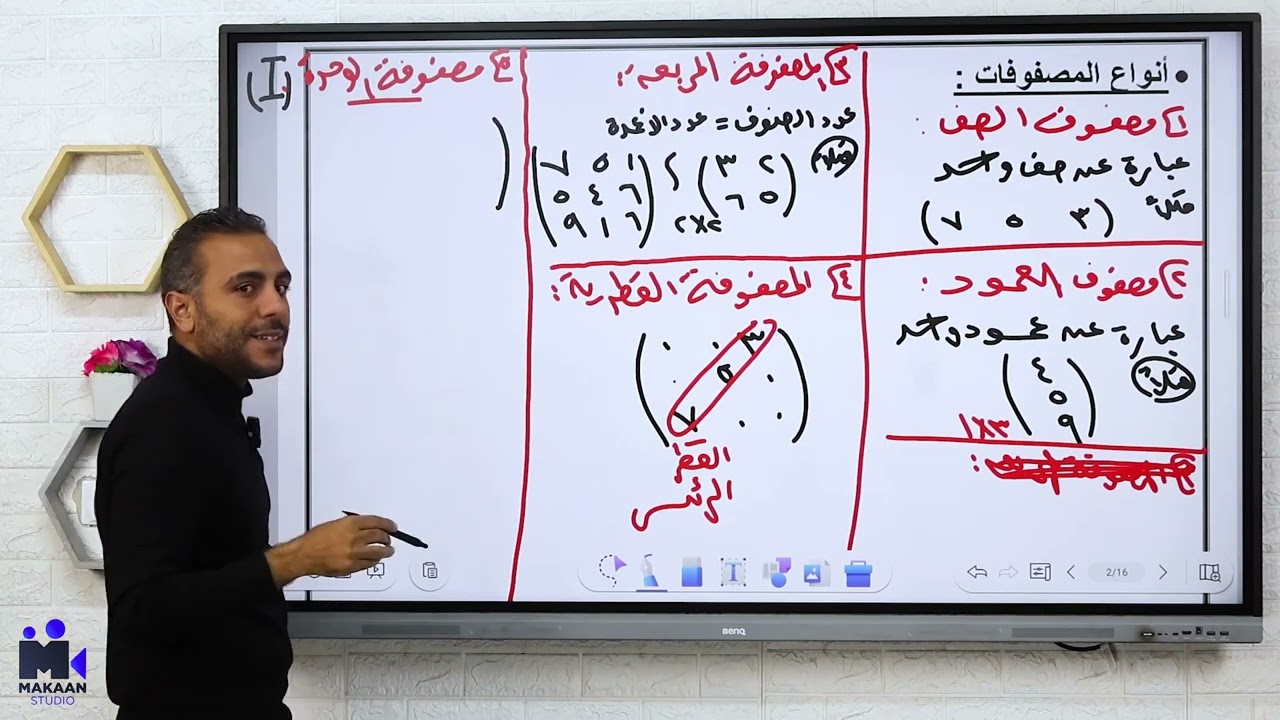 • أنواع المصفوفات :
١) مصفوفة الصف :
عبارة عن صف واحد
مثلاً
( ٣ ٥ ٧ )
٢) مصفوف العمود :
عبارة عن عمود واحد
مثلاً
٤
٥
٩
٣×١
٣) المصفوفة المربعه :
عدد الصفوف = عدد الاعمدة
مثلاً
٢ ٣ ، ١ ٥ ٧
٥ ٦ ٦ ٤ ٥
٢×٢ ٦ ١ ٩
٤) المصفوفة القطرية :
٣ ٠ ٠
٠ ٥ ٠
٠ ٠ ٧
القطر
الرئيسي
٥) مصفوفة الوحدة (I)
2/16
BenQ
MAKAAN
STUDIO